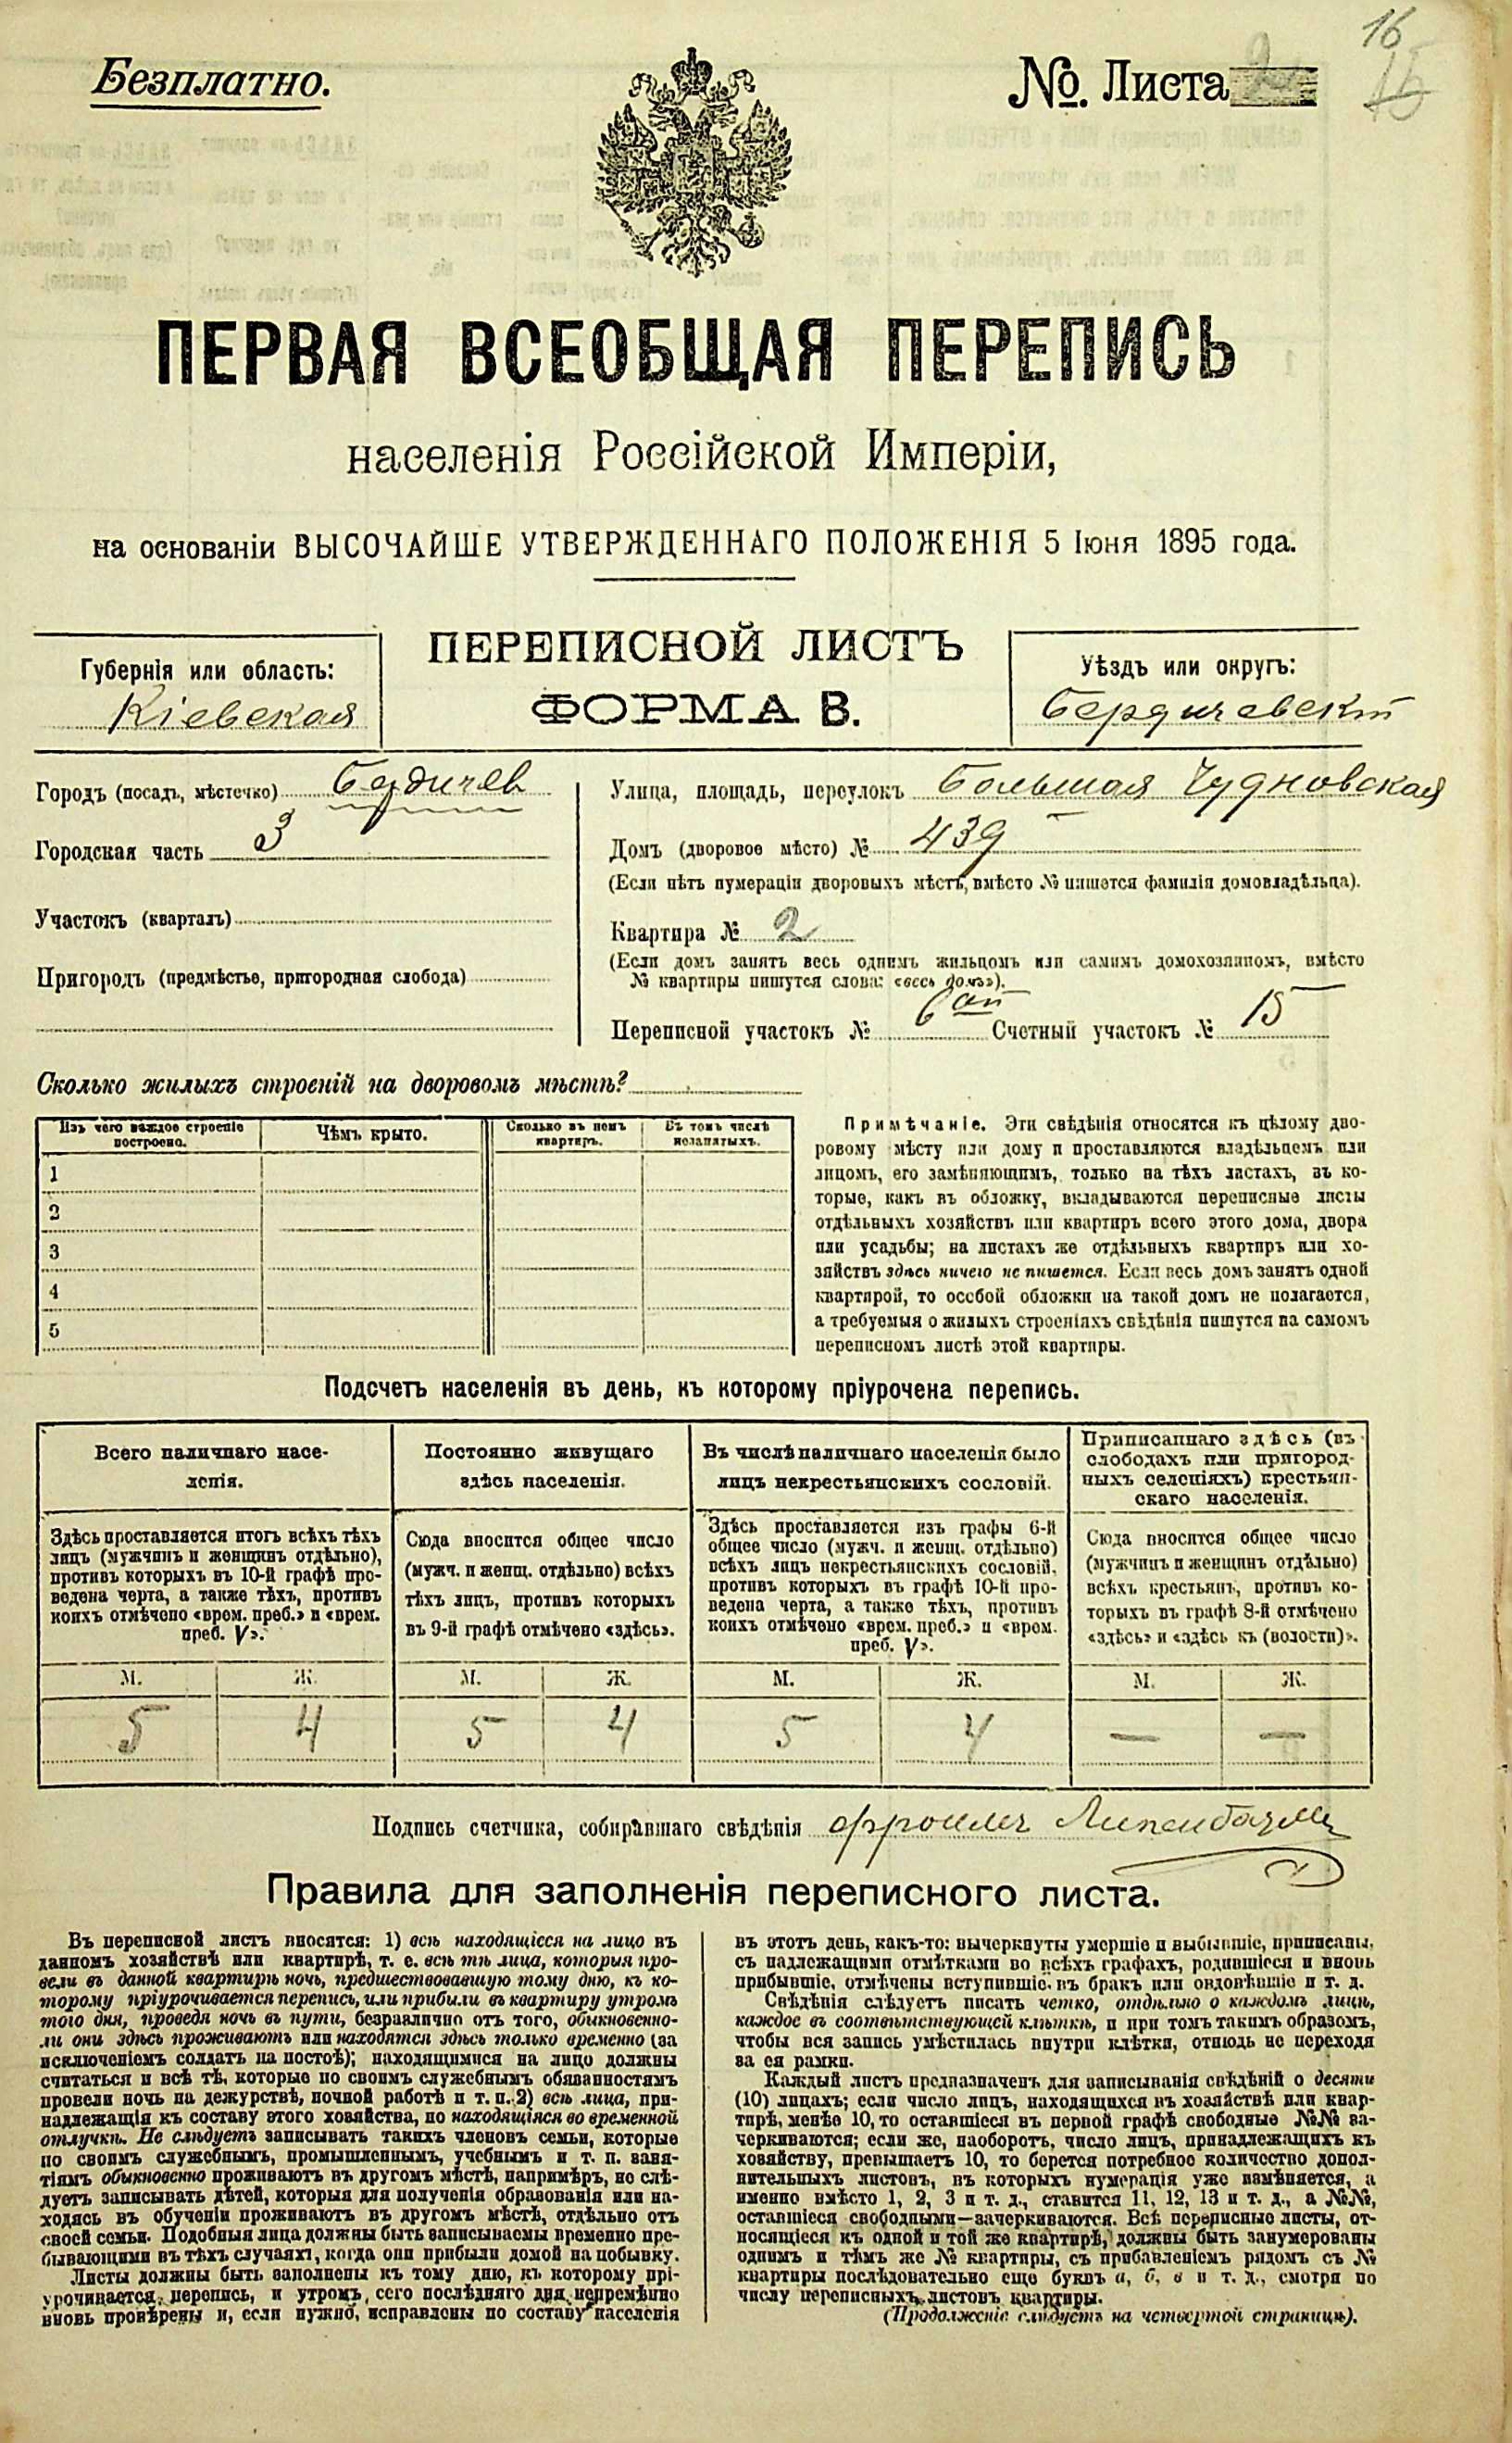 16
15
Безплатно.
№. Листа 2
ПЕРВАЯ ВСЕОБЩАЯ ПЕРЕПИСЬ
населенія Россійской Имперіи,
на основаніи ВЫСОЧАЙШЕ УТВЕРЖДЕННАГО ПОЛОЖЕНІЯ 5 Іюня 1895 года.
Губернія или область:
Кіевская
ПЕРЕПИСНОЙ ЛИСТЪ
ФОРМА В.
Уѣздъ или округъ:
Бердичевскій
Городъ (посадъ, мѣстечко) Бердичев
Городская часть 3
Участокъ (кварталъ)
Пригородъ (предмѣстье, пригородная слобода)
Улица, площадь, переулокъ Большая Чудновская
Домъ (дворовое мѣсто) № 439
(Если нѣтъ нумераціи дворовыхъ мѣстъ, вмѣсто № пишется фамилія домовладѣльца).
Квартира № 2
(Если домъ занятъ весь однимъ жильцомъ или самимъ домохозяиномъ, вмѣсто
№ квартиры пишутся слова: «весь домъ»).
Переписной участокъ № 6 Счетный участокъ № 15
Сколько жилыхъ строеній на дворовомъ мѣстѣ?
Изъ чего каждое строеніе построено.
Чѣмъ крыто.
Сколько въ немъ квартиръ.
Въ томъ числѣ незанятыхъ.
1
2
3
4
5
Примѣчаніе. Эти свѣдѣнія относятся къ цѣлому дво-
ровому мѣсту или дому и проставляются владѣльцемъ или
лицомъ, его замѣняющимъ, только на тѣхъ листахъ, въ ко-
торые, какъ въ обложку, вкладываются переписные листы
отдѣльныхъ хозяйствъ или квартиръ всего этого дома, двора
или усадьбы; на листахъ же отдѣльныхъ квартиръ или хо-
зяйствъ здѣсь ничего не пишется. Если весь домъ занятъ одной
квартирой, то особой обложки на такой домъ не полагается,
а требуемыя о жилыхъ строеніяхъ свѣдѣнія пишутся на самомъ
переписномъ листѣ этой квартиры.
Подсчетъ населенія въ день, къ которому пріурочена перепись.
Всего наличнаго насе-
ленія.
Постоянно живущаго
здѣсь населенія.
Въ числѣ наличнаго населенія было
лицъ некрестьянскихъ сословій.
Приписаннаго здѣсь (въ
слободахъ или пригород-
ныхъ селеніяхъ) крестьян-
скаго населенія.
Здѣсь проставляется итогъ всѣхъ тѣхъ
лицъ (мужчинъ и женщинъ отдѣльно),
противъ которыхъ въ 10-й графѣ про-
ведена черта, а также тѣхъ, противъ
коихъ отмѣчено «врем. преб.» и «врем.
преб. V».
Сюда вносится общее число
(мужч. и женщ. отдѣльно) всѣхъ
тѣхъ лицъ, противъ которыхъ
въ 9-й графѣ отмѣчено «здѣсь».
Здѣсь проставляется изъ графы 6-й
общее число (мужч. и женщ. отдѣльно)
всѣхъ лицъ некрестьянскихъ сословій,
противъ которыхъ въ графѣ 10-й про-
ведена черта, а также тѣхъ, противъ
коихъ отмѣчено «врем. преб.» и «врем.
преб. V».
Сюда вносится общее число
(мужчинъ и женщинъ отдѣльно)
всѣхъ крестьянъ, противъ ко-
торыхъ въ графѣ 8-й отмѣчено
«здѣсь» и «здѣсь къ (волости)».
М. Ж. М. Ж. М. Ж. М. Ж.
5 4 5 4 5 4 — —
Подпись счетчика, собиравшаго свѣдѣнія
Правила для заполненія переписного листа.
Въ переписной листъ вносятся: 1) всѣ находящіеся на лицо въ
данномъ хозяйствѣ или квартирѣ, т. е. всѣ тѣ лица, которыя про-
вели въ данной квартирѣ ночь, предшествовавшую тому дню, къ ко-
торому пріурочивается перепись, или прибыли въ квартиру утромъ
того дня, проведя ночь въ пути, безразлично отъ того, обыкновенно-
ли они здѣсь проживаютъ или находятся здѣсь только временно (за
исключеніемъ солдатъ на постоѣ); находящимися на лицо должны
считаться и всѣ тѣ, которые по своимъ служебнымъ обязанностямъ
провели ночь на дежурствѣ, ночной работѣ и т. п. 2) всѣ лица, при-
надлежащія къ составу этого хозяйства, но находящіяся во временной
отлучкѣ. Не слѣдуетъ записывать такихъ членовъ семьи, которые
по своимъ служебнымъ, промышленнымъ, учебнымъ и т. п. заня-
тіямъ обыкновенно проживаютъ въ другомъ мѣстѣ, напримѣръ, не слѣ-
дуетъ записывать дѣтей, которыя для полученія образованія или на-
ходясь въ обученіи проживаютъ въ другомъ мѣстѣ, отдѣльно отъ
своей семьи. Подобныя лица должны быть записываемы временно пре-
бывающими въ тѣхъ случаяхъ, когда они прибыли домой на побывку.
Листы должны быть заполнены къ тому дню, къ которому прі-
урочивается перепись, и утромъ сего послѣдняго дня непремѣнно
вновь провѣрены и, если нужно, исправлены по составу населенія
въ этотъ день, какъ-то: вычеркнуты умершіе и выбывшіе, приписаны,
съ надлежащими отмѣтками во всѣхъ графахъ, родившіеся и вновь
прибывшіе, отмѣчены вступившіе въ бракъ или овдовѣвшіе и т. д.
Свѣдѣнія слѣдуетъ писать четко, отдѣльно о каждомъ лицѣ,
каждое въ соотвѣтствующей клѣткѣ, и при томъ такимъ образомъ,
чтобы вся запись умѣстилась внутри клѣтки, отнюдь не переходя
за ея рамки.
Каждый листъ предназначенъ для записыванія свѣдѣній о десяти
(10) лицахъ; если число лицъ, находящихся въ хозяйствѣ или квар-
тирѣ, менѣе 10, то оставшіеся въ первой графѣ свободные №№ за-
черкиваются; если же, наоборотъ, число лицъ, принадлежащихъ къ
хозяйству, превышаетъ 10, то берется потребное количество допол-
нительныхъ листовъ, въ которыхъ нумерація уже измѣняется, а
именно вмѣсто 1, 2, 3 и т. д., ставится 11, 12, 13 и т. д., а №№,
оставшіеся свободными—зачеркиваются. Всѣ переписные листы, от-
носящіеся къ одной и той же квартирѣ, должны быть занумерованы
однимъ и тѣмъ же № квартиры, съ прибавленіемъ рядомъ съ №
квартиры послѣдовательно еще буквъ а, б, в и т. д., смотря по
числу переписныхъ листовъ квартиры.
(Продолженіе слѣдуетъ на четвертой страницѣ).